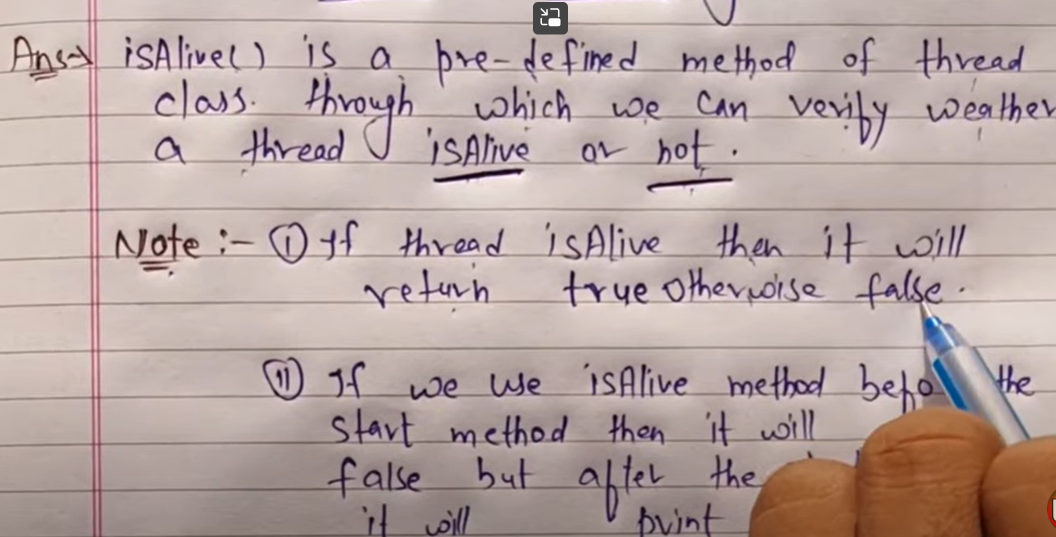 Ans→ isAlive() is a pre-defined method of thread
class. through which we can verify weather
a thread isAlive or not.
Note :- (i) If thread isAlive then it will
return true otherwise false.
(ii) If we use isAlive method the
start method then it will
false but after the
it will print